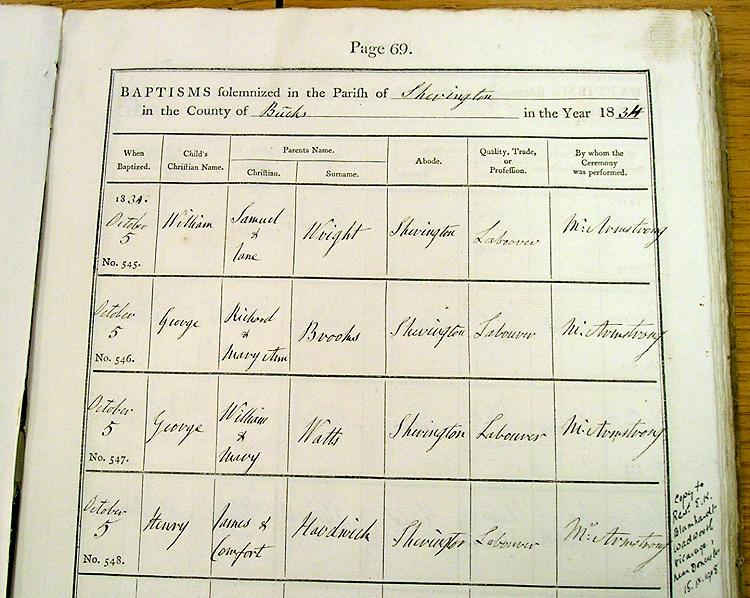 Page 69.
BAPTISMS solemnized in the Parish of Sherington
in the County of Bucks in the Year 1834
When Baptized. Child's Christian Name. Parents Name. Abode. Quality, Trade, or Profession. By whom the Ceremony was performed.
Christian. Surname.
1834. October 5 No. 545. William Samuel & Jane Wright Sherington Labourer Mr. Armstrong
October 5 No. 546. George Richard & Mary Ann Brooks Sherington Labourer Mr. Armstrong
October 5 No. 547. George William & Mary Watts Sherington Labourer Mr. Armstrong
October 5 No. 548. Henry James & Comfort Hardwick Sherington Labourer Mr. Armstrong
Copy to
Revd
Wadworth
Vicarage
near Doncaster